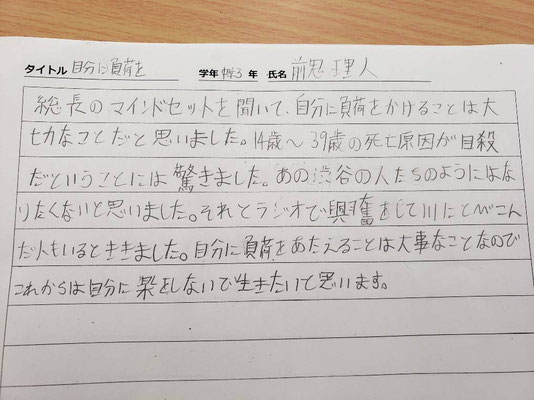 タイトル 自分に負荷を 学年 中学3 年 氏名 前鬼 理人
総長のマインドセットを聞いて、自分に負荷をかけることは大
七刀なことだと思いました。14歳〜39歳の死亡原因が自殺
だということには驚きました。あの渋谷の人たちのようにはな
りたくないと思いました。それとラジオで興奮をして川にとびこん
だ人もいるとききました。自分に負荷をあたえることは大事なことなので
これからは自分に楽をしないで生きたいて思います。